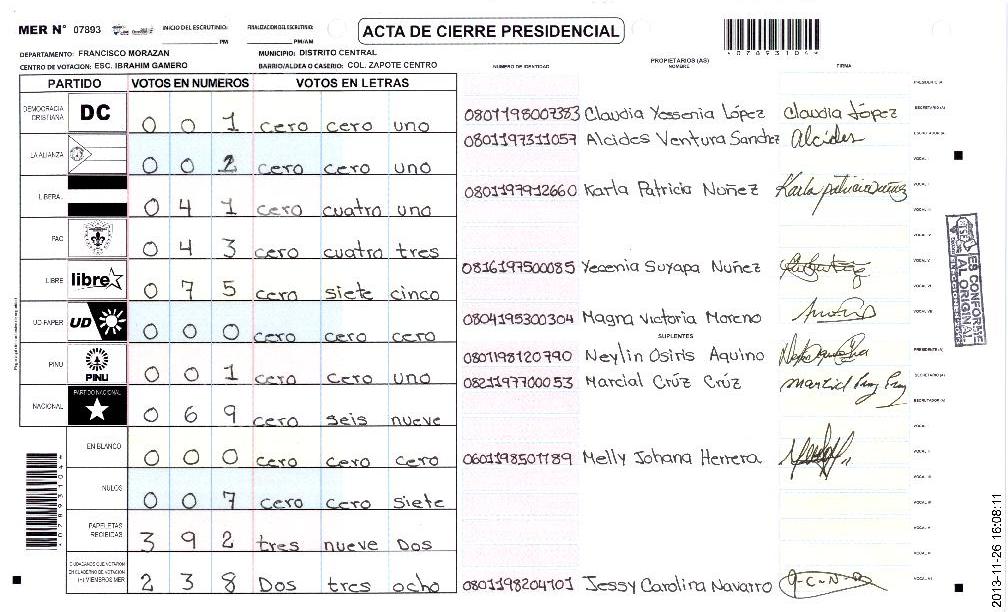 MER N° 07893 INICIO DEL ESCRUTINIO: PM FINALIZACION DEL ESCRUTINIO: PM/AM
ACTA DE CIERRE PRESIDENCIAL
DEPARTAMENTO: FRANCISCO MORAZAN MUNICIPIO: DISTRITO CENTRAL
CENTRO DE VOTACION: ESC. IBRAHIM GAMERO BARRIO/ALDEA O CASERIO: COL. ZAPOTE CENTRO
NUMERO DE IDENTIDAD PROPIETARIOS (AS) NOMBRE FIRMA
PARTIDO VOTOS EN NUMEROS VOTOS EN LETRAS
DEMOCRACIA CRISTIANA DC 0 0 1 cero cero uno
LA ALIANZA 0 0 2 cero cero uno
LIBERAL 0 4 1 cero cuatro uno
PAC 0 4 3 cero cuatro tres
LIBRE libre 0 7 5 cero siete cinco
UD-FAPER UD 0 0 0 cero cero cero
PINU PINU 0 0 1 cero cero uno
NACIONAL PARTIDO NACIONAL 0 6 9 cero seis nueve
EN BLANCO 0 0 0 cero cero cero
NULOS 0 0 7 cero cero siete
PAPELETAS RECIBIDAS 3 9 2 tres nueve Dos
CIUDADANOS QUE VOTARON EN CUADERNO DE VOTACION (+) MIEMBROS MER 2 3 8 Dos tres ocho
PRESIDENTE (A)
0801198007383 Claudia Yessenia López Claudia López SECRETARIO (A)
0801197311057 Alcides Ventura Sandez Alcides ESCRUTADOR (A)
VOCAL I
0801197912660 Karla Patricia Nuñez Karla patricia nuñez
0816197500085 Yecenia Suyapa Nuñez
0804195300304 Magna Victoria Moreno
SUPLENTES
0801198120790 Neylin Osiris Aquino PRESIDENTE (A)
0821197700053 Marcial Crúz Crúz SECRETARIO (A)
ESCRUTADOR (A)
0601198501789 Melly Johana Herrera
0801198204701 Jessy Carolina Navarro J-C-N-
ES CONFORME AL ORIGINAL
2013-11-26 16:08:11
*07893104*